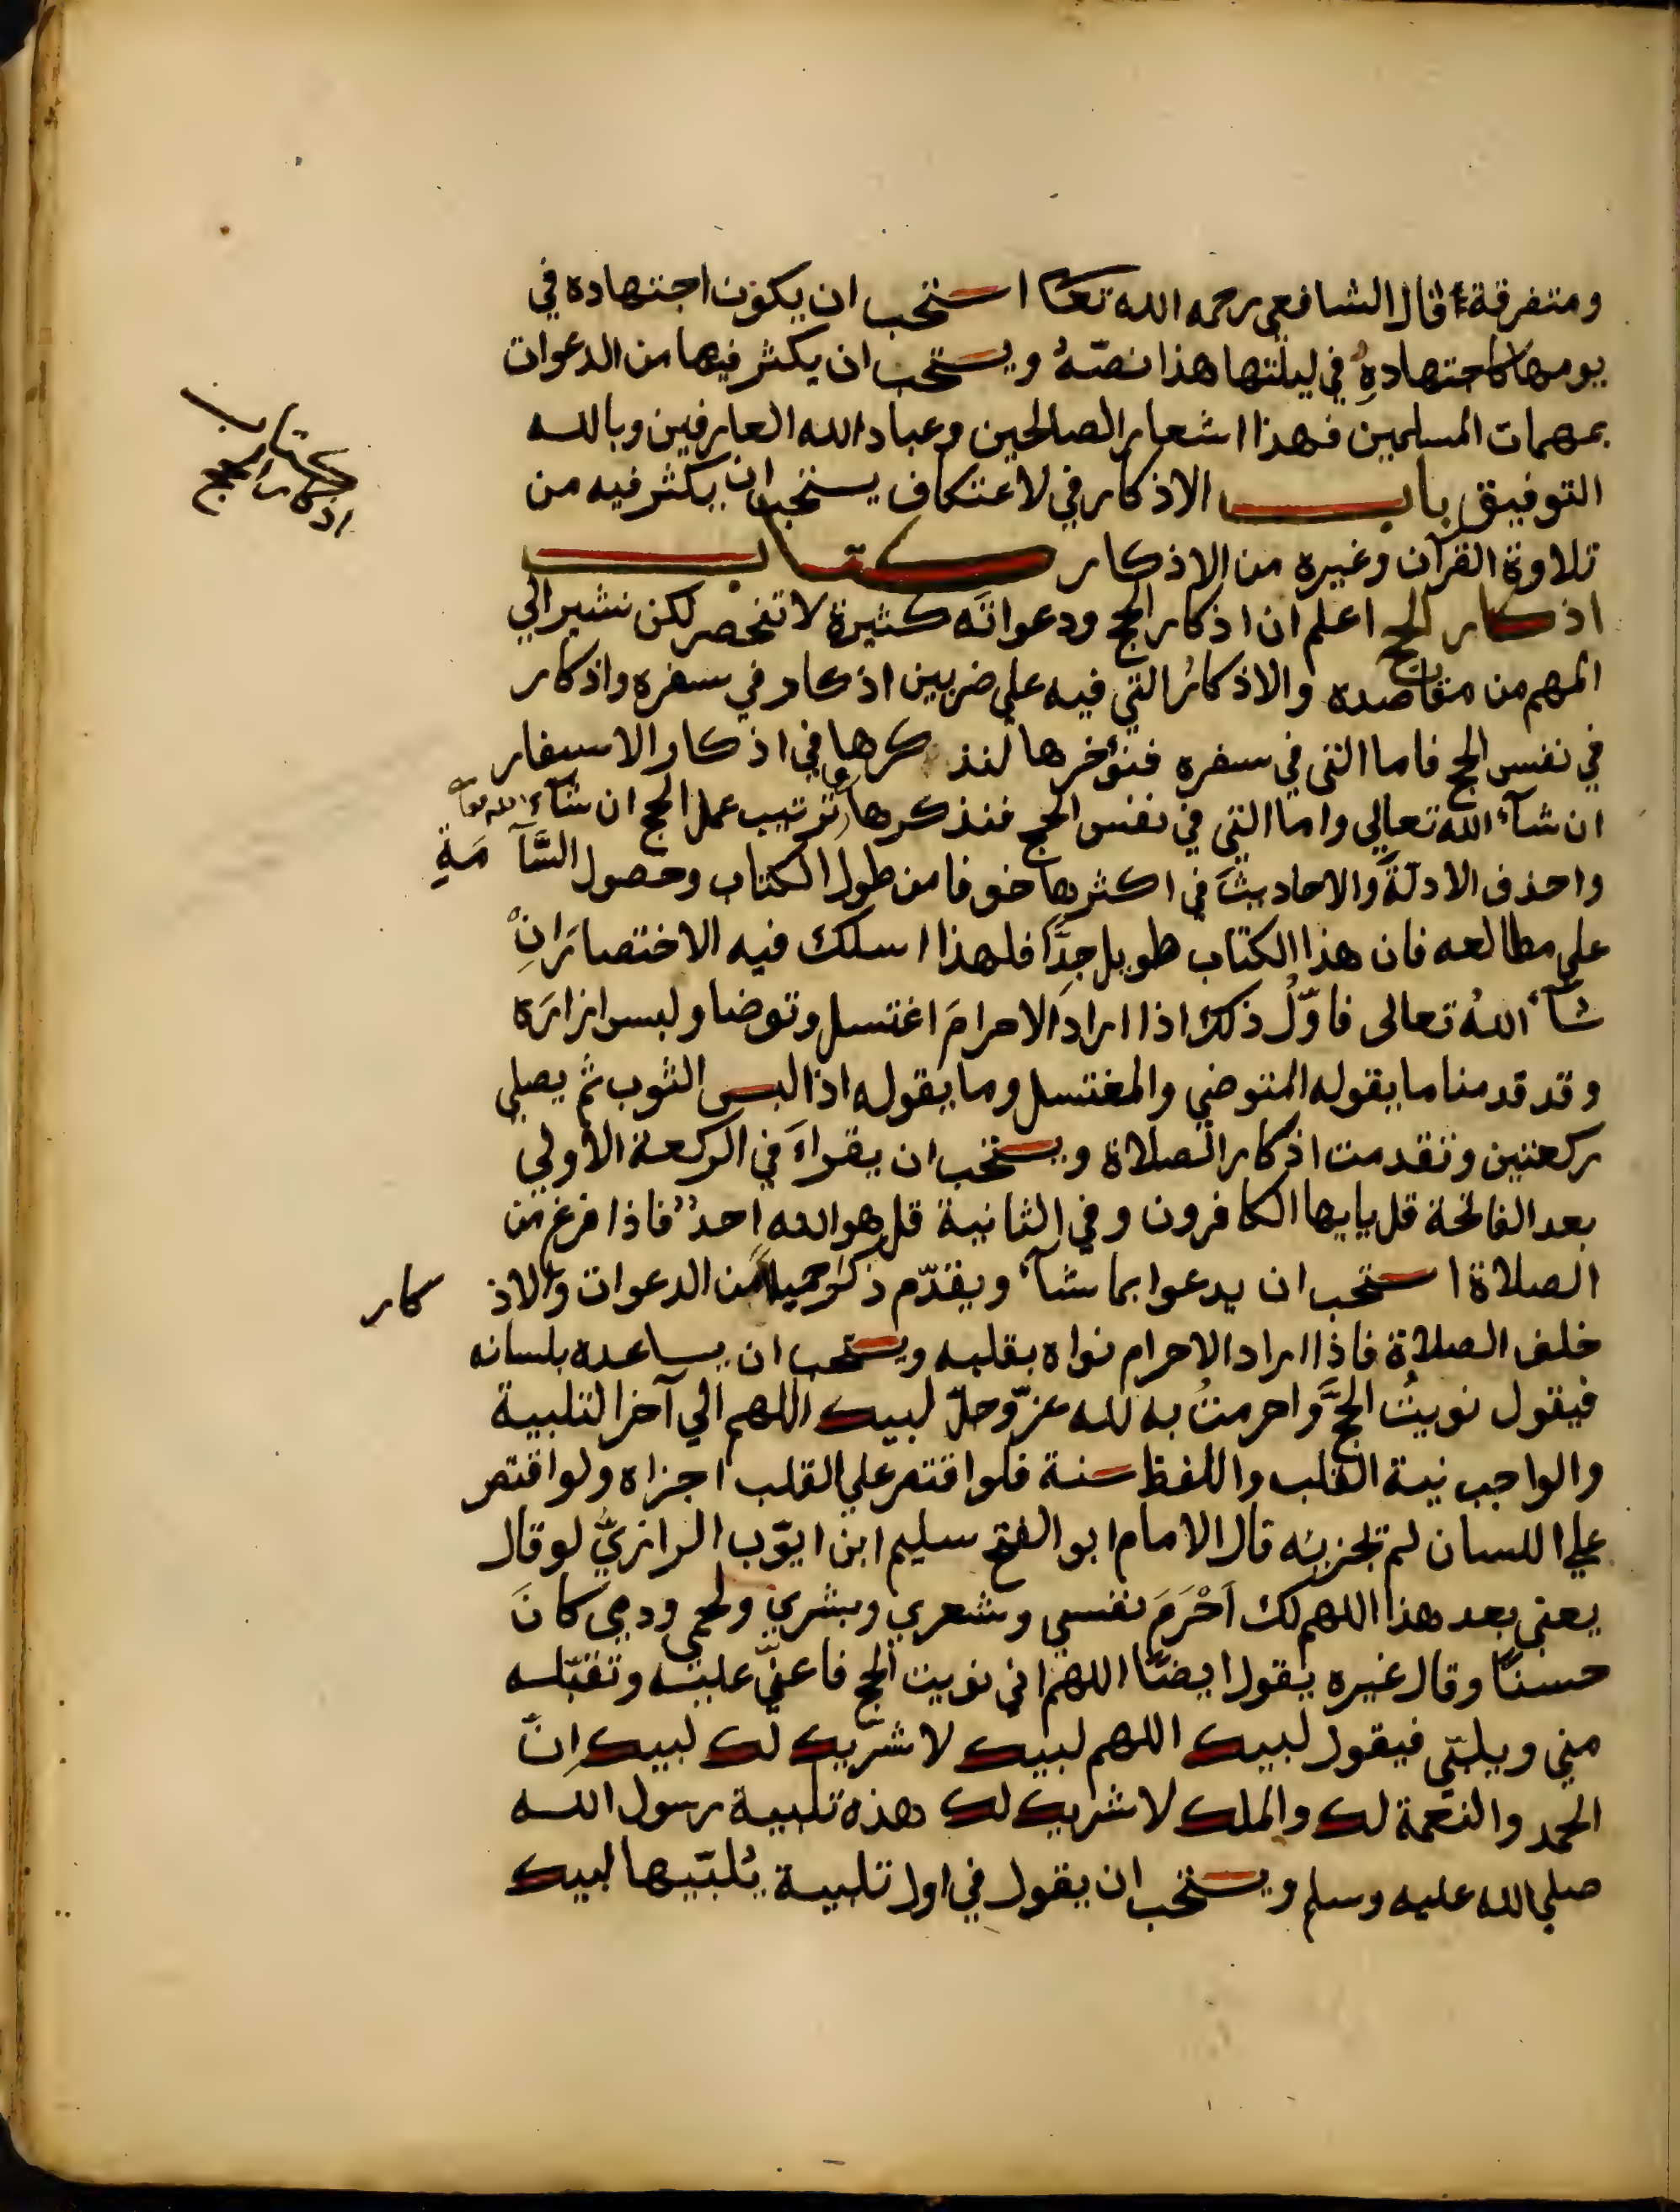 ومتفرقة قال الشافعي رحمه الله تعا استحب ان يكون اجتهاده في
يومها كاجتهادهِ في ليلتها هذا نصّهُ ويستحب ان يكثر فيها من الدعوات
بمهمات المسلمين فهذا اشعار الصالحين وعباد الله العارفين وبالله
التوفيق باب الاذكار في لاعتكاف يستحب ان يكثر فيه من
تلاوة القرآن وغيره من الاذكار كتاب
اذكار الحج اعلم ان اذكار الحج ودعواته كثيرة لا تنحصر لكن نشير الي
المهم من مقاصده والاذكارُ التي فيه علي ضربين اذكار في سفره واذكار
في نفس الحج فاما التي في سفره فنؤخرها لنذكرها في اذكار الاسفار
ان شآء الله تعالي واما التي في نفس الحج فنذكرها علي ترتيب عمل الحج ان شآء الله تعا
واحذف الادلّةَ والاحاديثَ في اكثرها خوفا من طول الكتاب وحصول السَّآمَةِ
علي مطالعه فان هذا الكتاب طويل جِدًّا فلهذا اسلك فيه الاختصارَ انِْ
شآء اللهُ تعالى فاوّلُ ذلك اذا اراد الاحرامَ اغتسل وتوضا ولبس ازارَه
وقد قدمنا ما يقوله المتوضي والمغتسل وما يقوله اذا لبس الثوب ثم يصلي
ركعتين وتقدمت اذكار الصلاة ويستحب ان يقراَ في الركعة الاولي
بعد الفاتحة قل يايها الكافرون وفي الثانية قل هو الله احد فاذا فرغ من
الصلاة استحب ان يدعوا بما شآء ويقدّم ذكر جملة من الدعوات والاذكار
خلف الصلاة فاذا اراد الاحرام نواه بقلبه ويستحب ان يساعده بلسانه
فيقول نويتُ الحجَّ واحرمتُ به لله عزّ وجلّ لبيك اللهم الي آخر التلبية
والواجب نية القلب واللفظ سنة فلو اقتصر علي القلب اجزاه ولو اقتصر
علي اللسان لم يجزيه قال الامام ابو الفتح سليم ابن ايوّب الرازيُّ لو قال
يعني بعد هذا اللهم لك اَحْرَمَ نفسي وشعري وبشري ولحمي ودمي كانَ
حسنًا وقال غيره يقول ايضًا اللهم اني نويت الحج فاعنّي عليه وتقبّله
مني ويلبّي فيقول لبيك اللهم لبيك لا شريك لك لبيك اِنّ
الحمد والنعمة لك والملك لا شريك لك هذه تلبية رسول الله
صلي الله عليه وسلم ويستحب ان يقول في اول تلبية يُلبّيها لبيك
كتاب
اذكار الحج